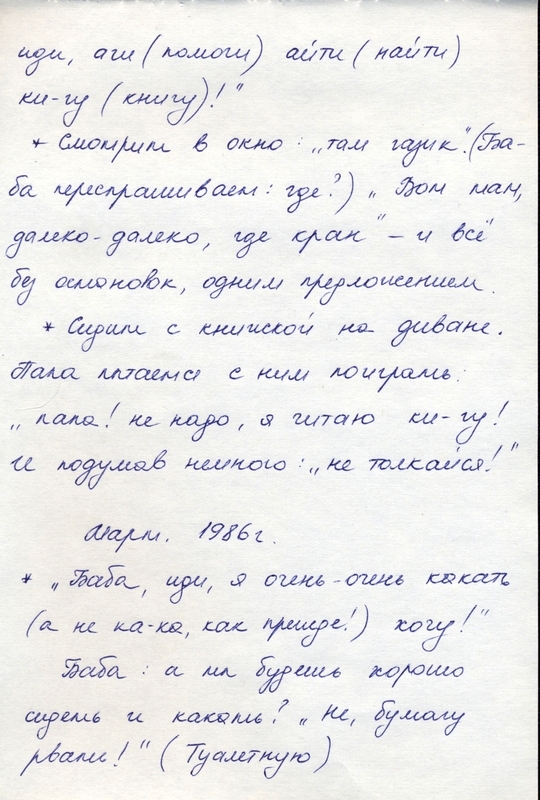 иди, аги (помоги) айти (найти)
ки-гу (книгу)!"
* Смотрит в окно: „там газик". (Ба-
ба переспрашивает: где?) „Вот там,
далеко-далеко, где кран" – и всё
без остановок, одним предложением.
* Сидит с книжкой на диване.
Папа пытается с ним поиграть:
„папа! не надо, я читаю ки-гу!
И подумав немного: „не толкайся!"
Март. 1986г.
* „Баба, иди, я очень-очень какать
(а не ка-ка, как прежде!) хочу!"
Баба: а ты будешь хорошо
сидеть и какать? „Не, бумагу
рвати!" (Туалетную)